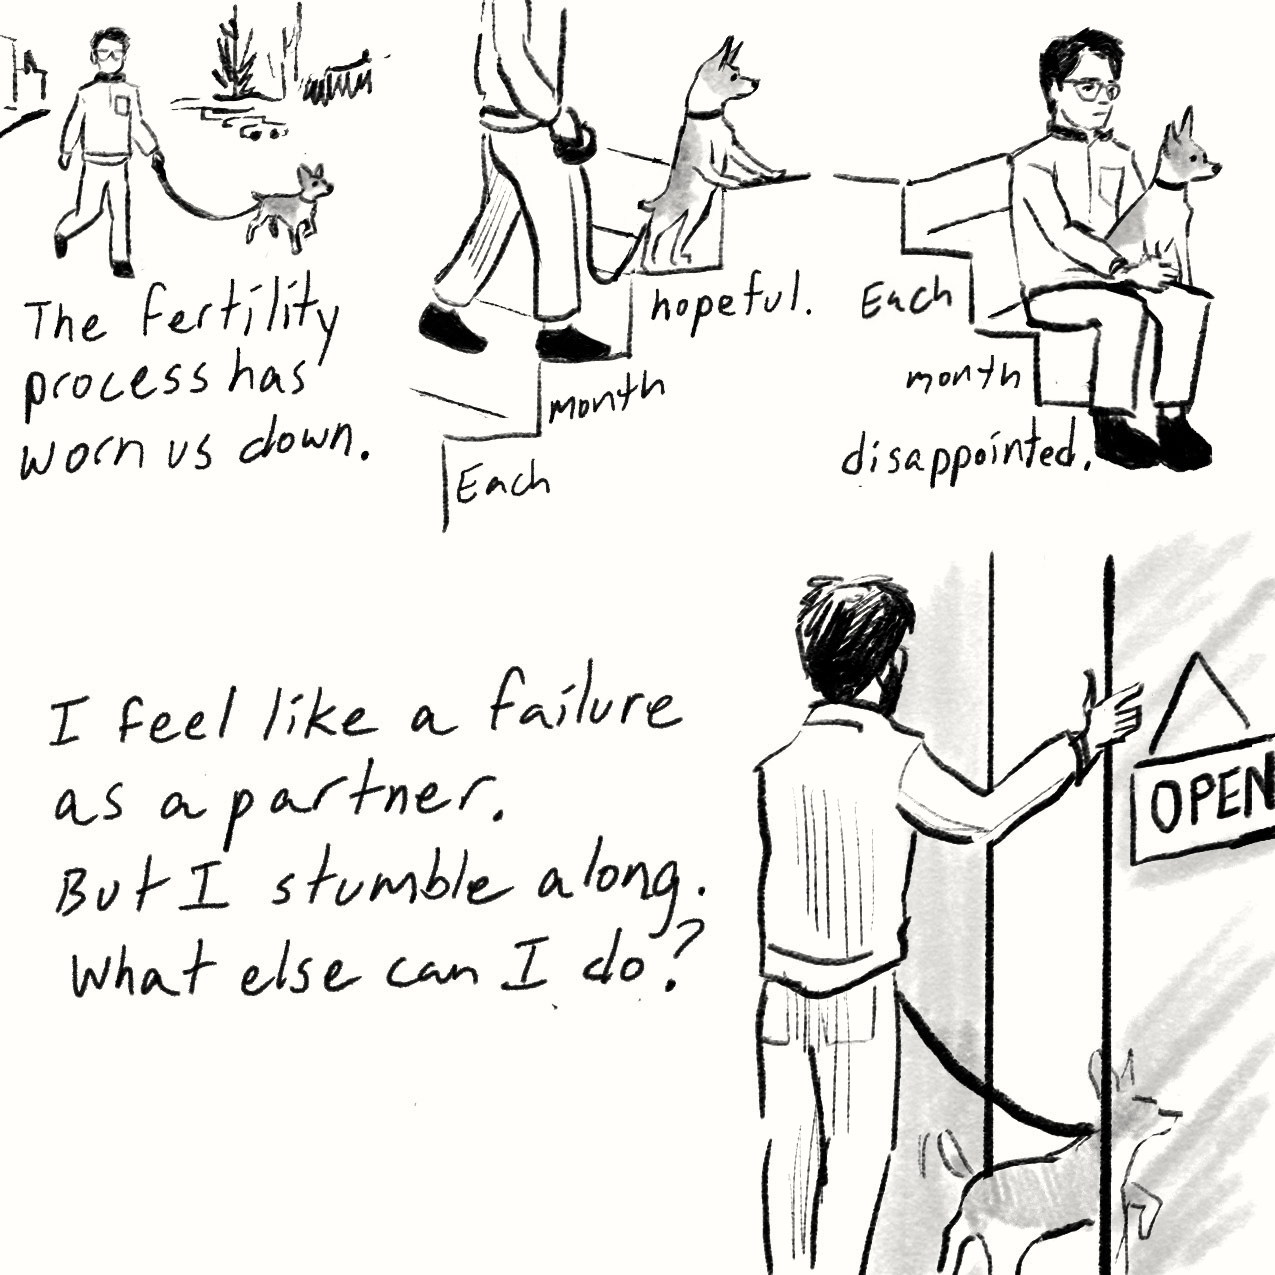 The fertility
process has
worn us down.
Each
month
hopeful.
Each
month
disappointed.
I feel like a failure
as a partner.
But I stumble along.
What else can I do?
OPEN